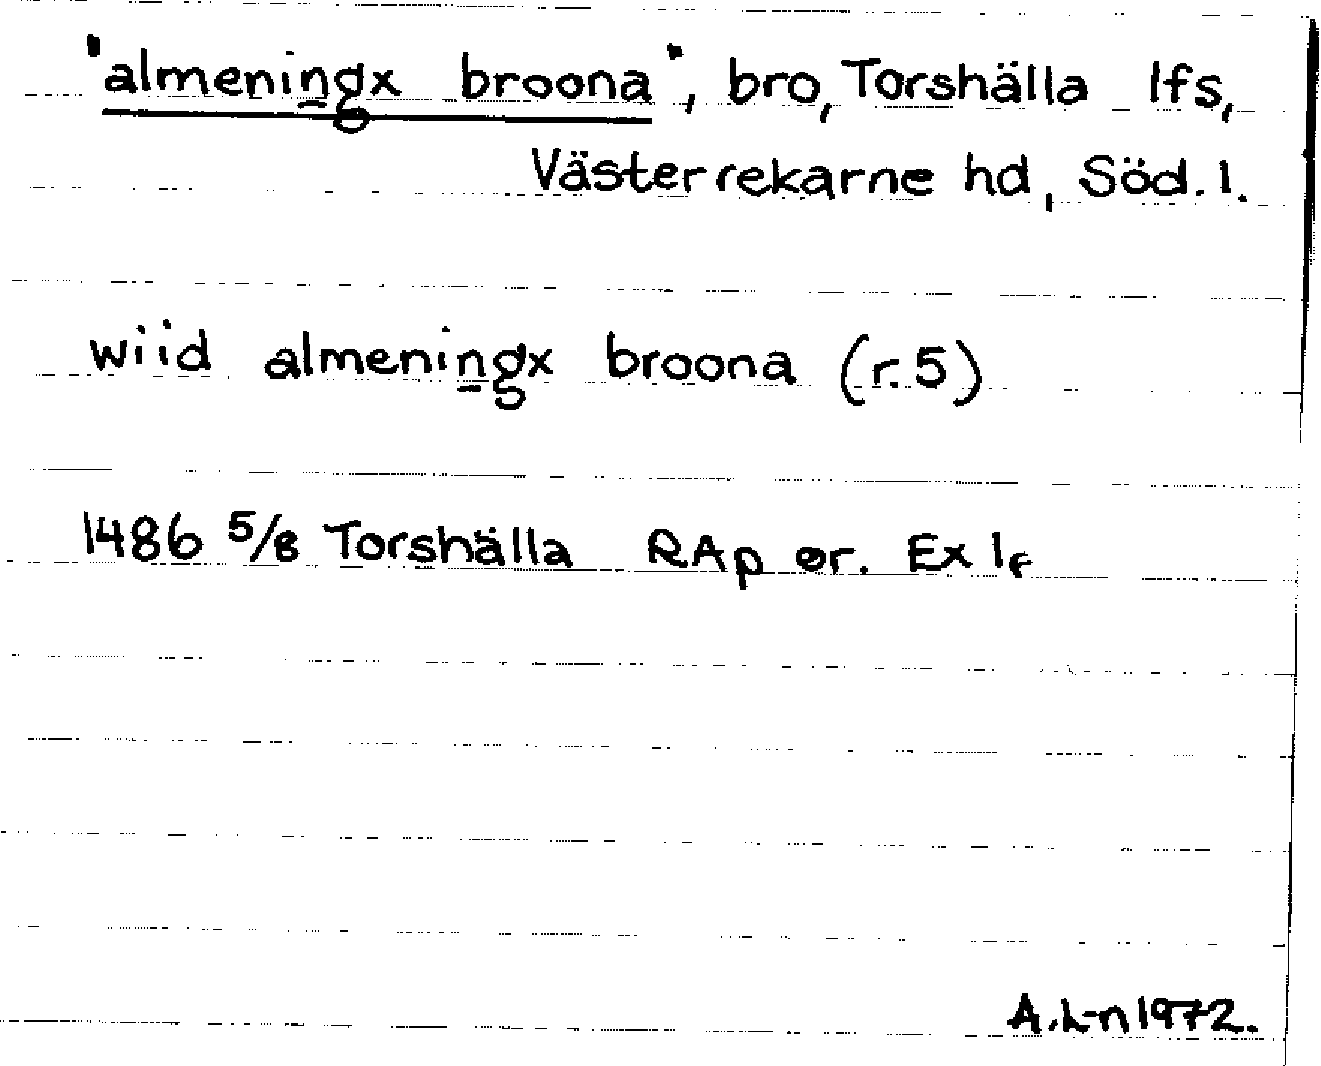 "almeningx broona", bro, Torshälla lfs,
Västerrekarne hd, Söd. l.
wiid almeningx broona (r. 5)
1486 5/8 Torshälla RAp or. Ex 1f
A.L-n 1972.